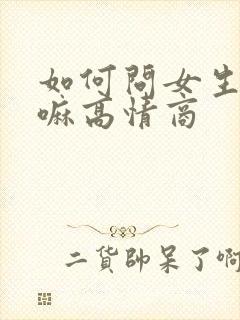 如何問女生
嘛高情商
二貨帥呆了啊